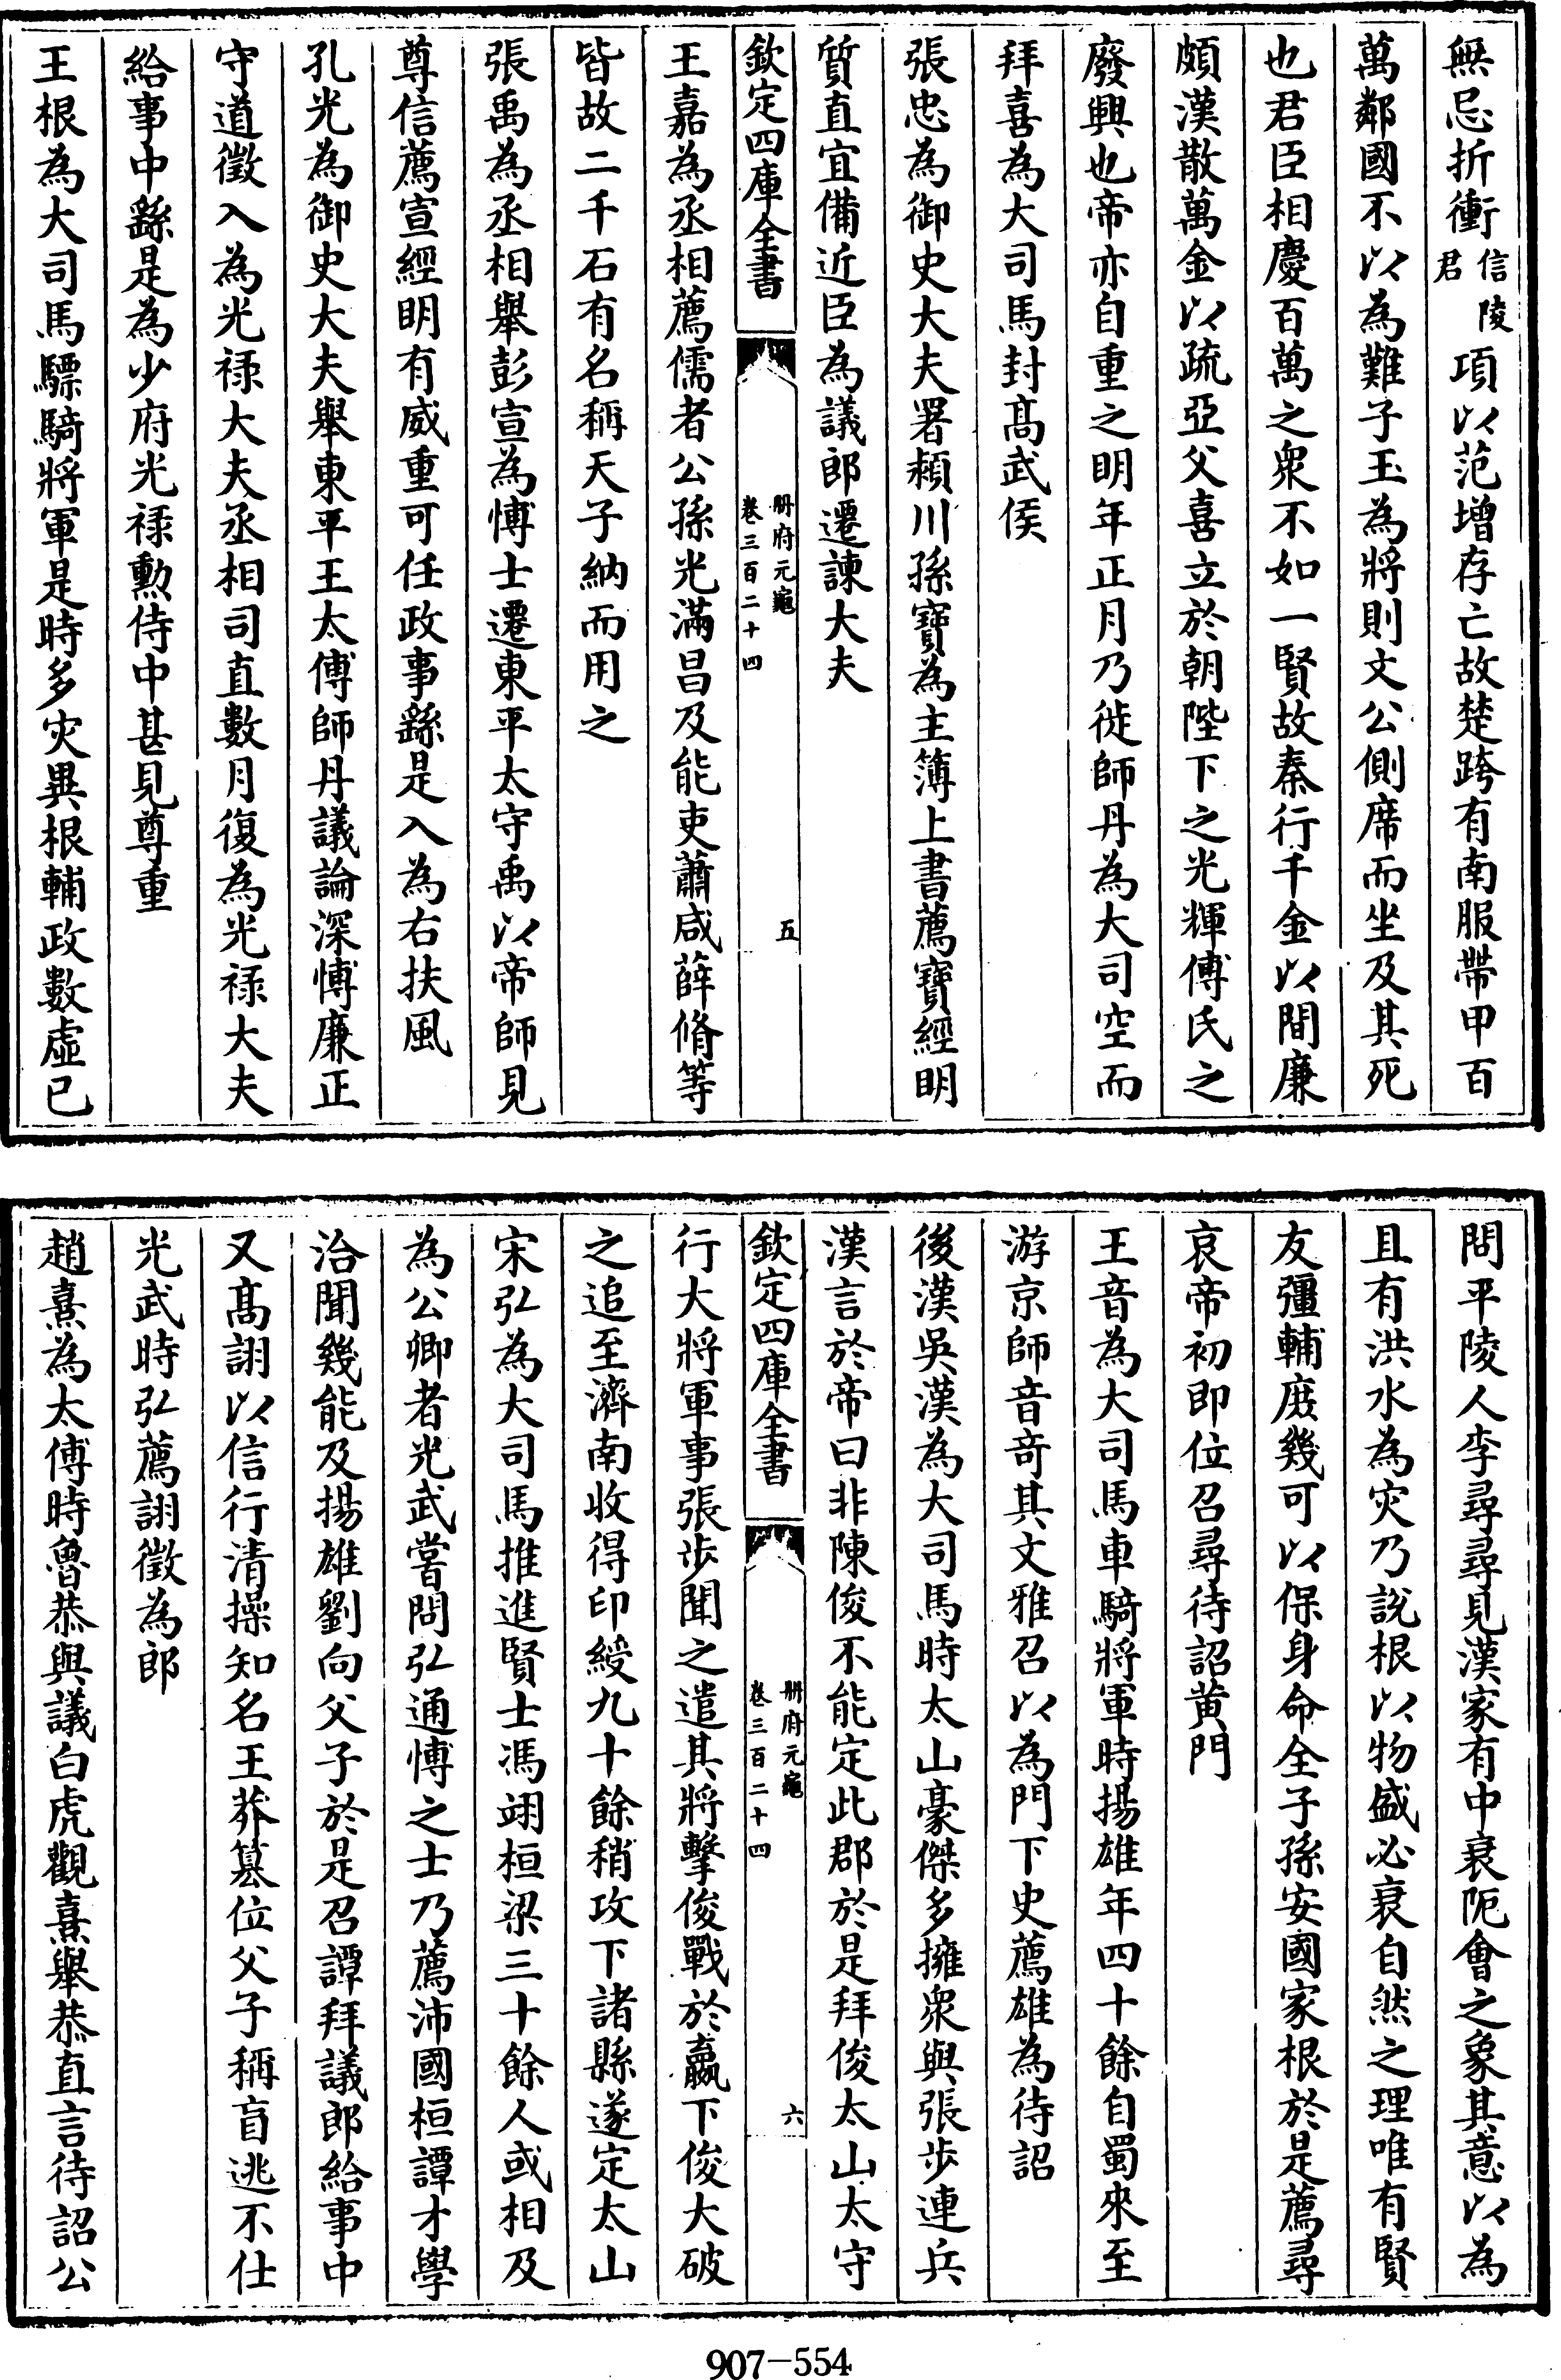 無忌折衝信陵君項以范增存亡故楚跨有南服帶甲百
萬鄰國不以為難子玉為將則文公側席而坐及其死
也君臣相慶百萬之衆不如一賢故秦行千金以間廉
頗漢散萬金以疏亞父喜立於朝陛下之光輝傅氏之
廢興也帝亦自重之明年正月乃徙師丹為大司空而
拜喜為大司馬封髙武侯
張忠為御史大夫署潁川孫寶為主簿上書薦寶經明
質直宜備近臣為議郎遷諫大夫
欽定四庫全書
冊府元龜
卷三百二十四
五
王嘉為丞相薦儒者公孫光滿昌及能吏蕭咸薛脩等
皆故二千石有名稱天子納而用之
張禹為丞相舉彭宣為博士遷東平太守禹以帝師見
尊信薦宣經明有威重可任政事繇是入為右扶風
孔光為御史大夫舉東平王太傅師丹議論深博廉正
守道徵入為光祿大夫丞相司直數月復為光祿大夫
給事中繇是為少府光祿勳侍中甚見尊重
王根為大司馬驃騎將軍是時多灾異根輔政數虛已
問平陵人李尋尋見漢家有中衰阨會之象其意以為
且有洪水為灾乃說根以物盛必衰自然之理唯有賢
友彊輔庶幾可以保身命全子孫安國家根於是薦尋
哀帝初即位召尋待詔黃門
王音為大司馬車騎將軍時揚雄年四十餘自蜀來至
游京師音竒其文雅召以為門下史薦雄為待詔
後漢吳漢為大司馬時太山豪傑多擁衆與張步連兵
漢言於帝曰非陳俊不能定此郡於是拜俊太山太守
欽定四庫全書
冊府元龜
卷三百二十四
六
行大將軍事張步聞之遣其將擊俊戰於嬴下俊大破
之追至濟南收得印綬九十餘稍攻下諸縣遂定太山
宋弘為大司馬推進賢士馮翊桓梁三十餘人或相及
為公卿者光武嘗問弘通博之士乃薦沛國桓譚才學
洽聞幾能及揚雄劉向父子於是召譚拜議郎給事中
又髙詡以信行清操知名王莽簒位父子稱盲逃不仕
光武時弘薦詡徵為郎
趙熹為太傅時魯恭與議白虎觀熹舉恭直言待詔公
907-554